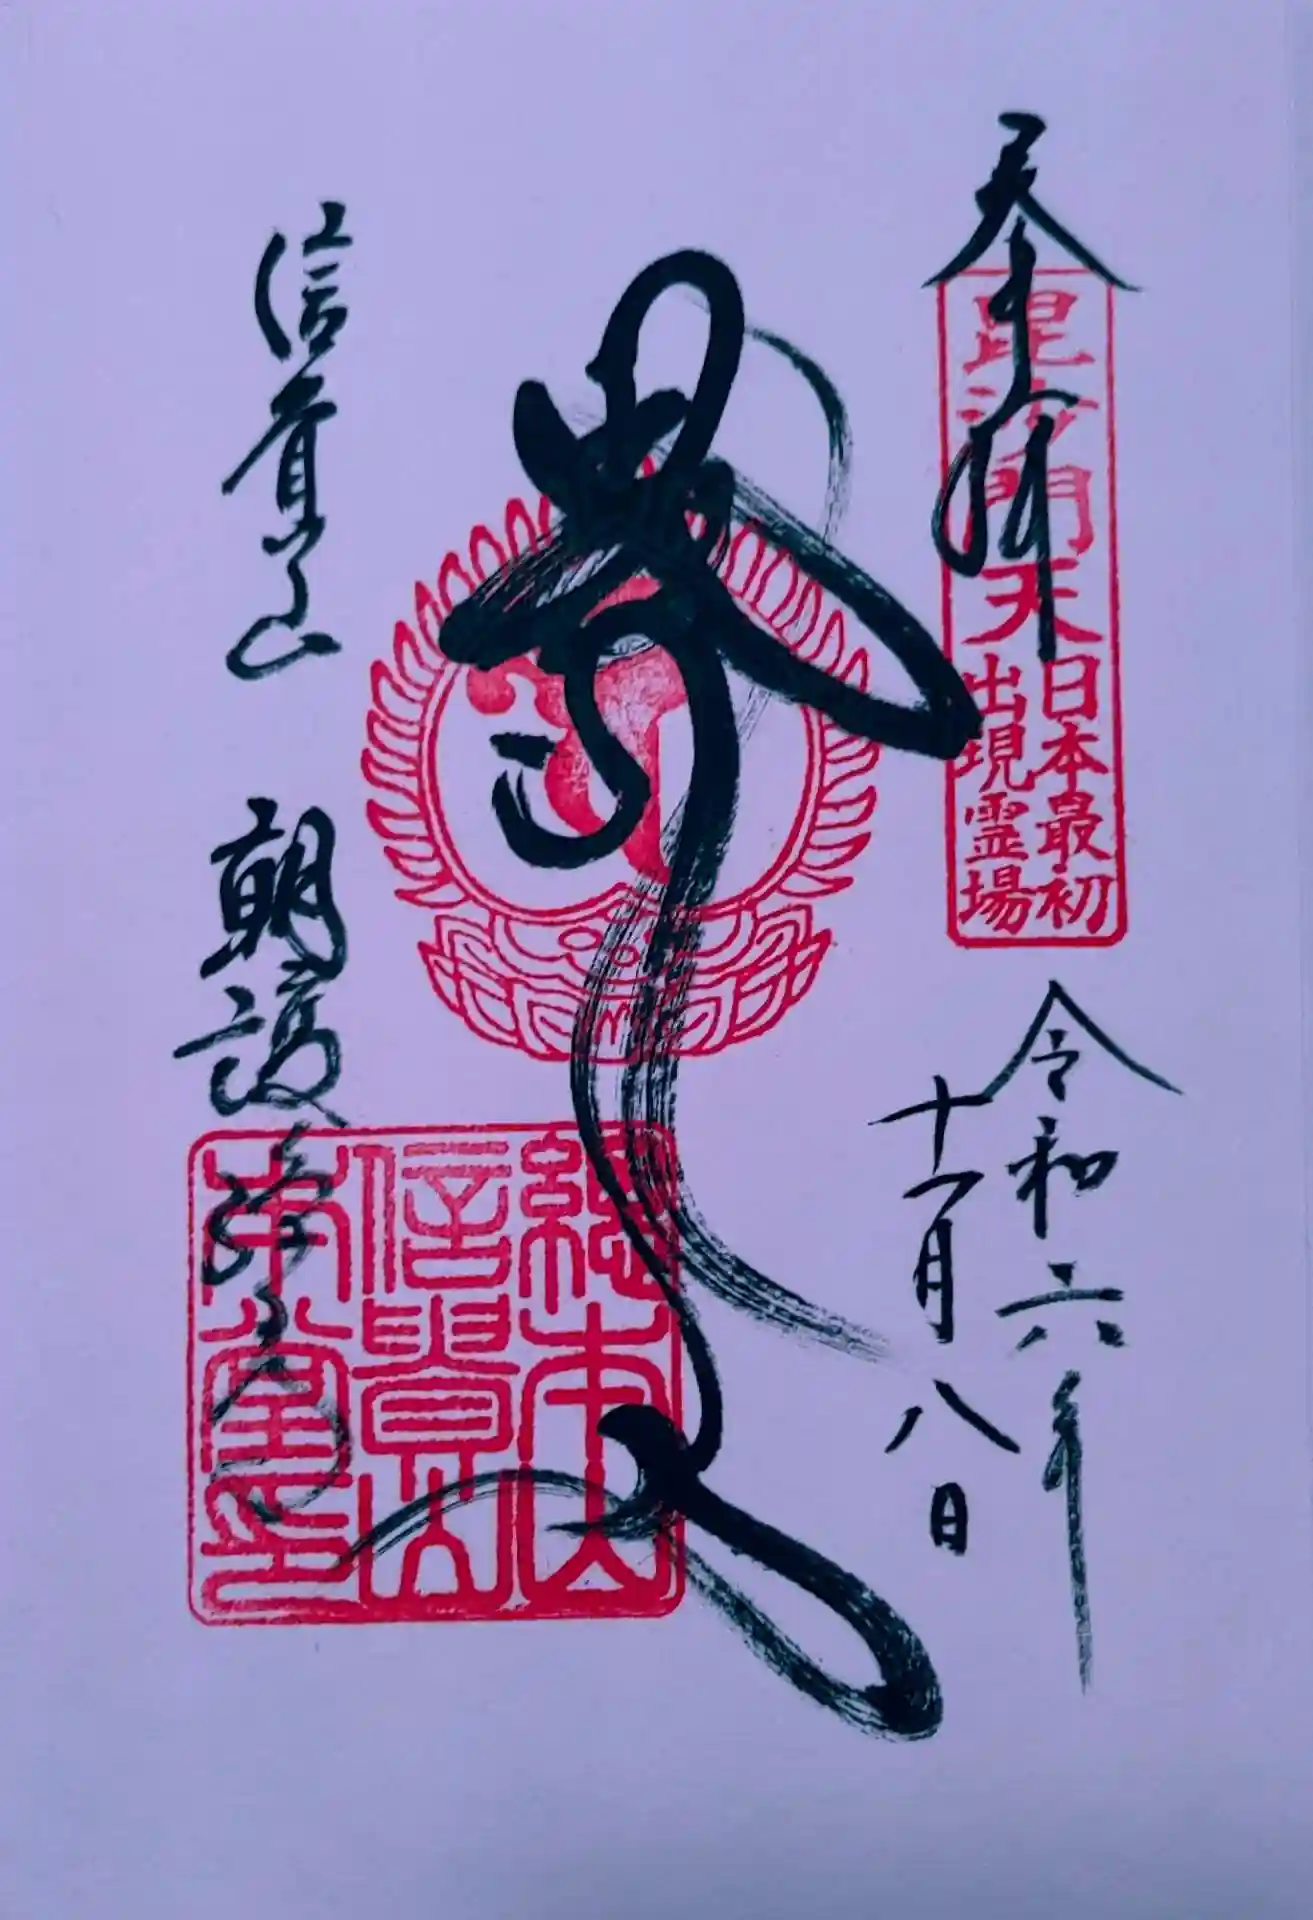 奉拝
毘沙門天
日本最初
出現霊場
令和六年
十一月八日
總本山
信貴山
本堂印
信貴山 朝護孫子寺